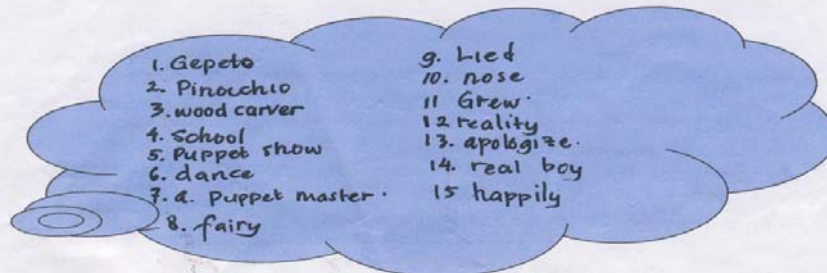 1. Gepeto
2. Pinocchio
3. wood carver
4. School
5. Puppet show
6. dance
7. a. Puppet master.
8. fairy
9. Lied
10. nose
11 Grew.
12 reality
13. apologize.
14. real boy
15 happily